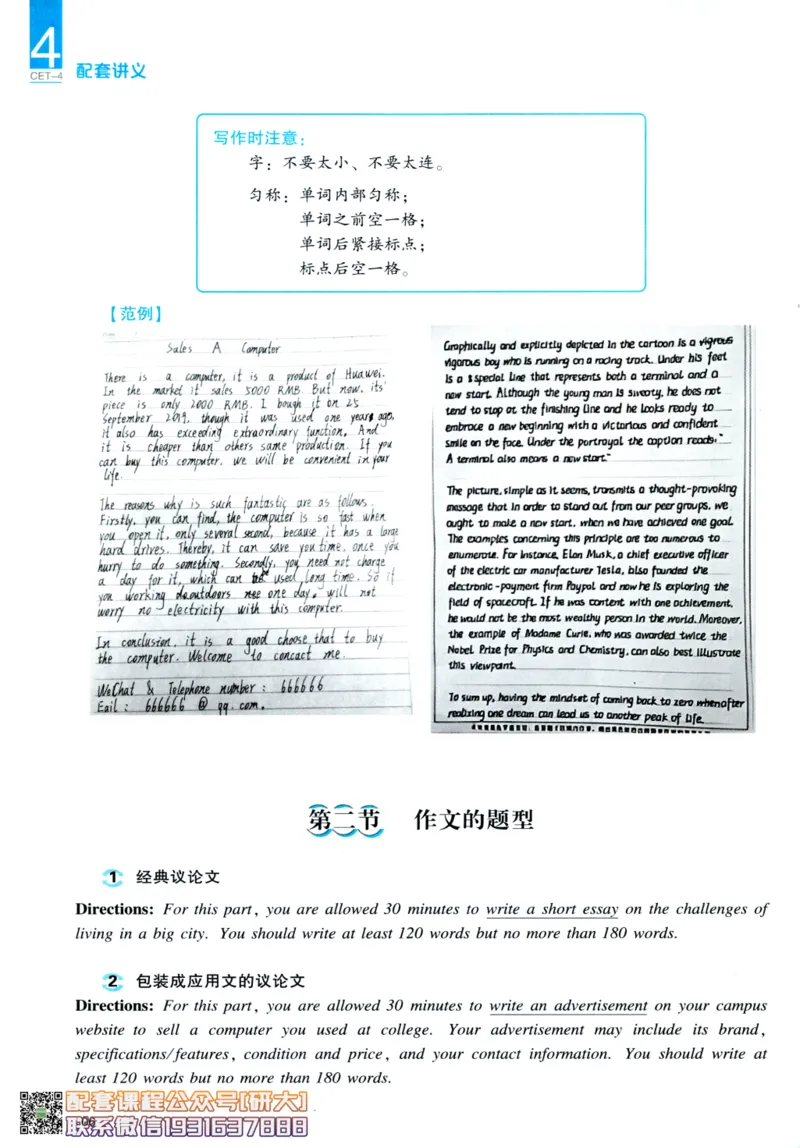 4
CET-4
配套讲义
写作时注意:
字：不要太小、不要太连。
匀称：单词内部匀称；
单词之前空一格；
单词后紧接标点；
标点后空一格。
【范例】
Sales A Computer
There is a computer, it is a product of Huawei.
In the market it sales 5000 RMB. But now, its
piece is only 2000 RMB. I bough it on 25
September 2019, though it was used one years ago,
it also has exceeding extraordinary function. And
it is cheaper than others same production. If you
can buy this computer, we will be convenient in your
life.
The reasons why is such fantastic are as follows.
Firstly, you can find, the computer is so fast when
you open it, only several second, because it has a large
hard drives. Thereby, it can save you time, once you
hurry to do something. Secondly, you need not charge
a day for it, which can be used long time. So if
you working outdoors one day, will not
worry no electricity with this computer.
In conclusion, it is a good choose that to buy
the computer. Welcome to concact me.
WeChat & Telephone number: 666666
Eail: 666666 @ qq.com.
Graphically and explicitly depicted in the cartoon is a vigrous
vigorous boy who is running on a racing track. Under his feet
is a special line that represents both a terminal and a
new start. Although the young man is sweaty, he does not
tend to stop at the finishing line and he looks ready to
embrace a new beginning with a victorious and confident
smile on the face. Under the portrayal the caption reads:"
A terminal also means a new start."
The picture, simple as it seems, transmits a thought-provoking
message that in order to stand out from our peer groups, we
ought to make a new start, when we have achieved one goal.
The examples concerning this principle are too numerous to
enumerate. For instance, Elon Musk, a chief executive officer
of the electric car manufacturer Tesla, also founded the
electronic-payment firm Paypal and now he is exploring the
field of spacecraft. If he was content with one achievement,
he would not be the most wealthy person in the world. Moreover,
the example of Madame Curie, who was awarded twice the
Nobel Prize for Physics and Chemistry, can also best illustrate
this viewpoint.
To sum up, having the mindset of coming back to zero when after
realizing one dream can lead us to another peak of life.
第二节 作文的题型
1 经典议论文
Directions: For this part, you are allowed 30 minutes to write a short essay on the challenges of
living in a big city. You should write at least 120 words but no more than 180 words.
2 包装成应用文的议论文
Directions: For this part, you are allowed 30 minutes to write an advertisement on your campus
website to sell a computer you used at college. Your advertisement may include its brand,
specifications/features, condition and price, and your contact information. You should write at
least 120 words but no more than 180 words.
配套课程公众号[研大]
联系微信1931637888